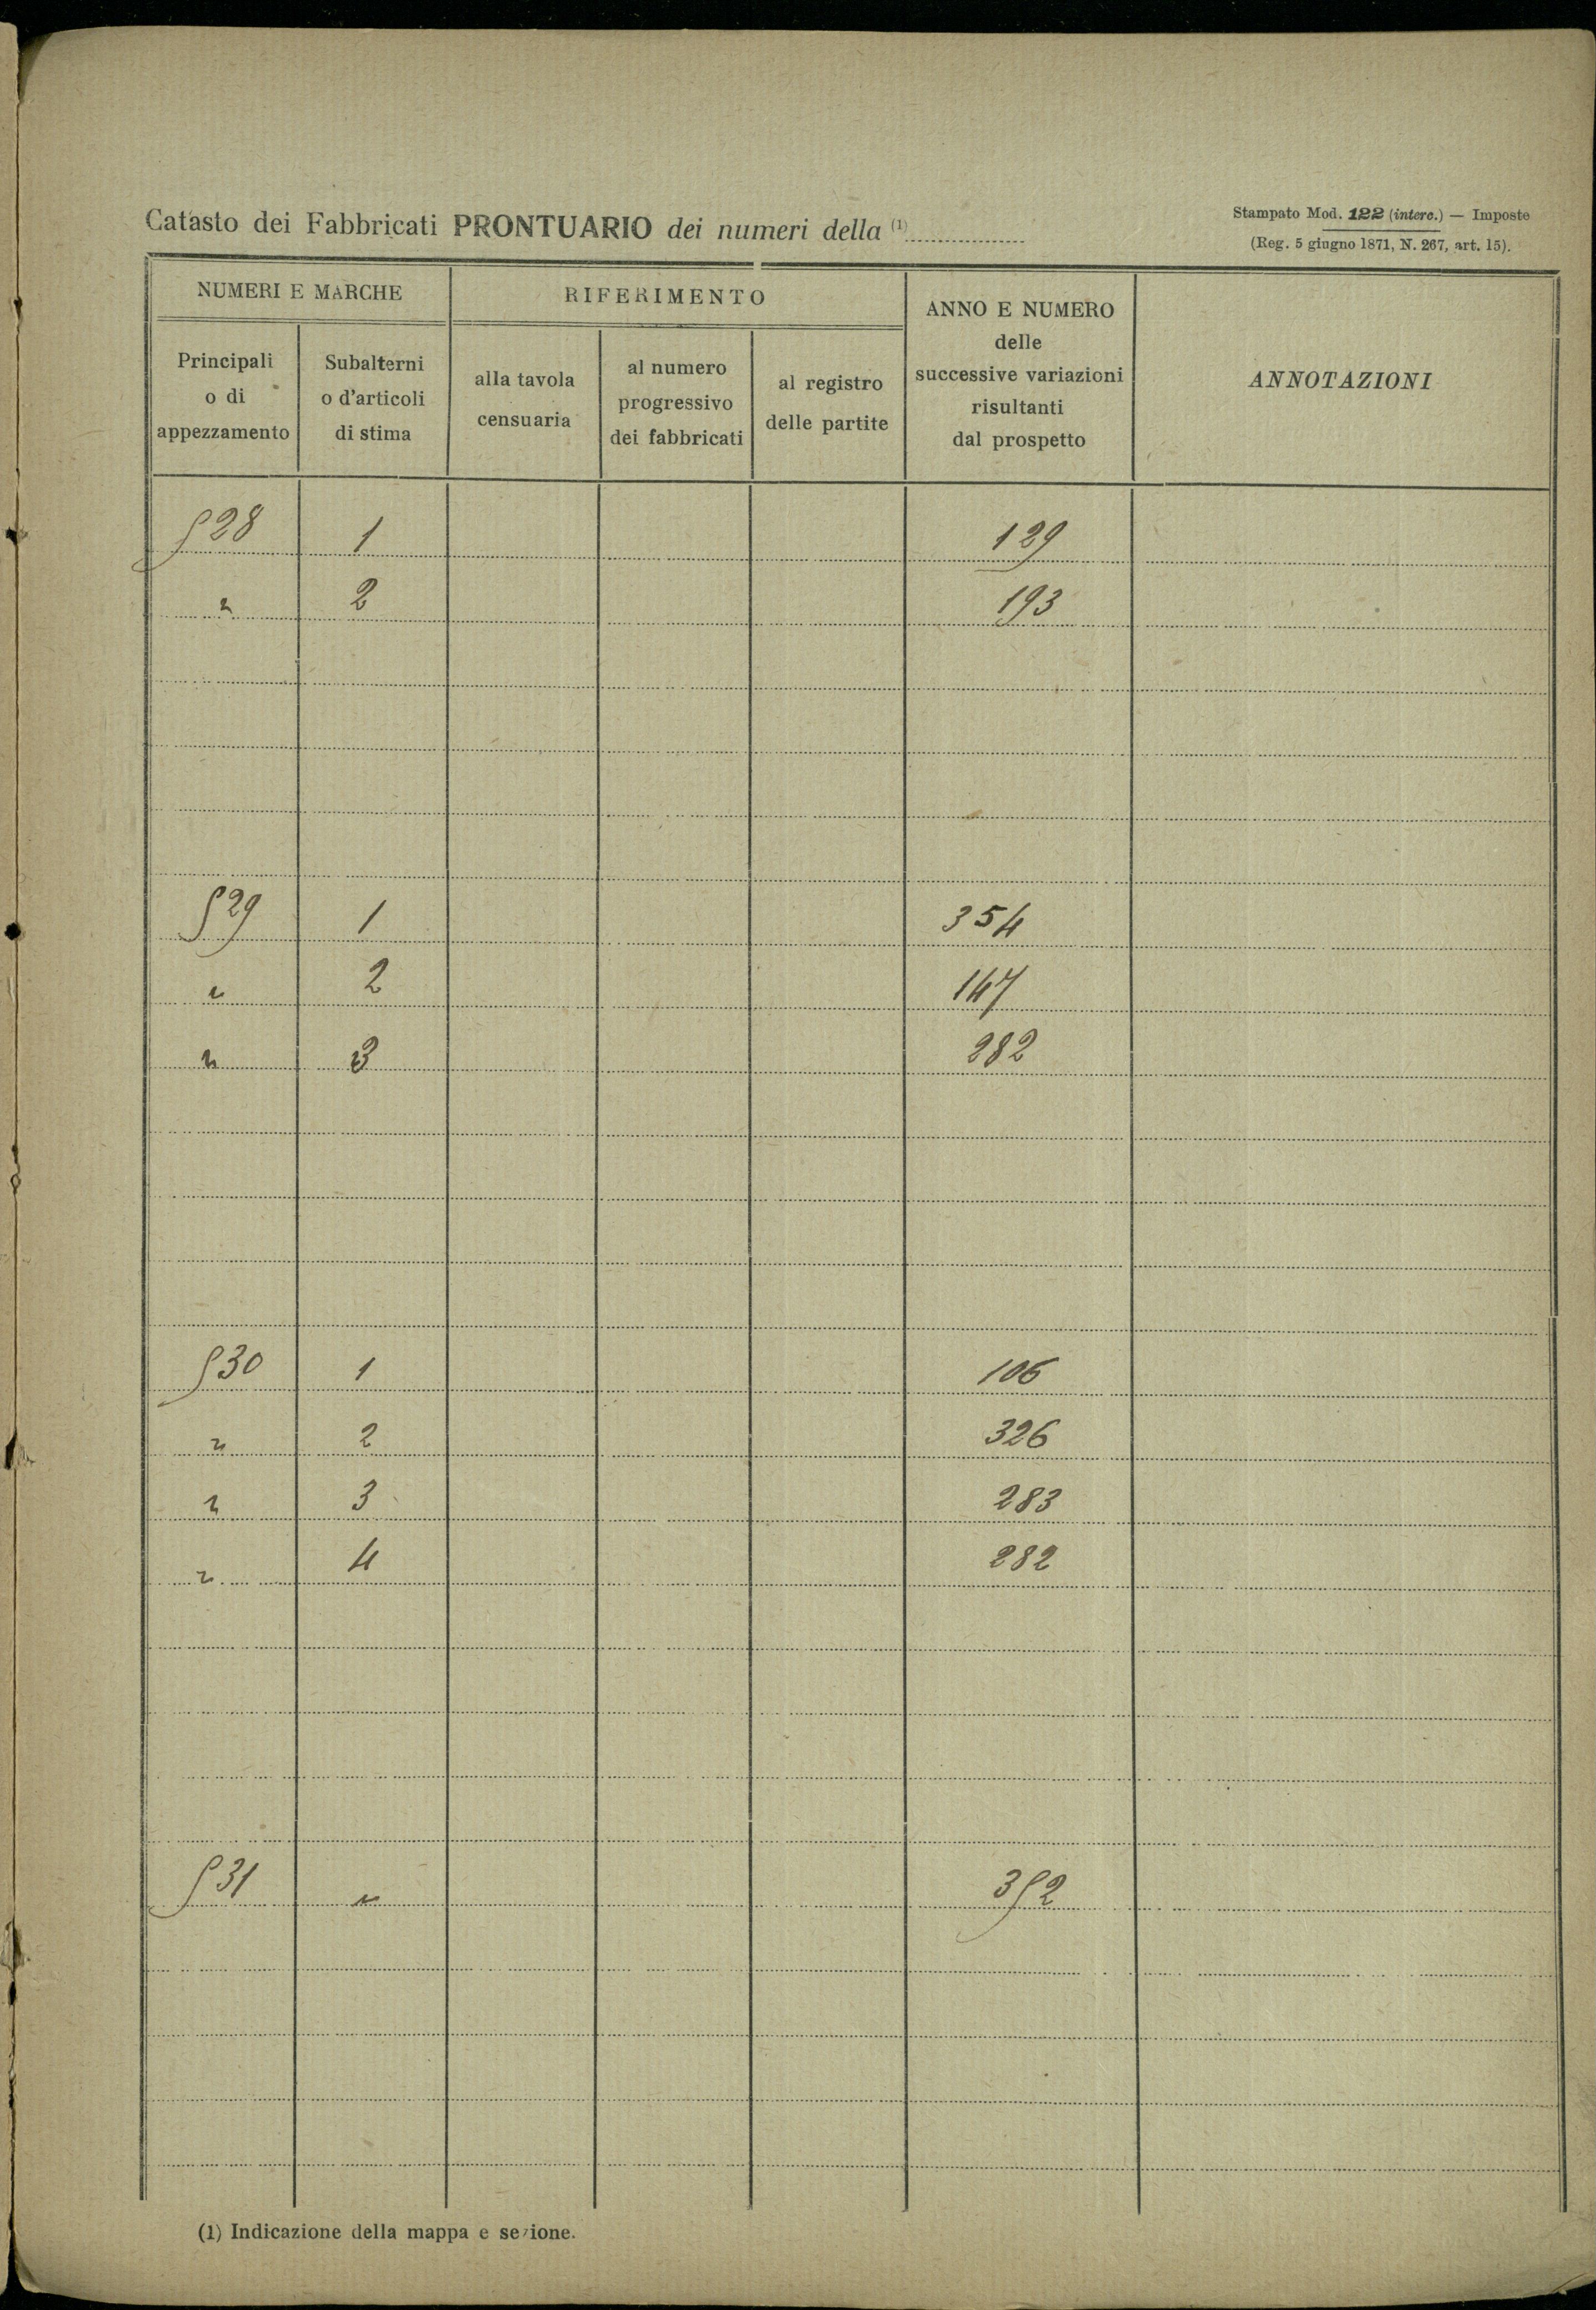 Catasto dei Fabbricati PRONTUARIO dei numeri della (1)
Stampato Mod. 122 (interc.) — Imposte
(Reg. 5 giugno 1871, N. 267, art. 15).
NUMERI E MARCHE
RIFERIMENTO
ANNO E NUMERO
delle
successive variazioni
risultanti
dal prospetto
ANNOTAZIONI
Principali
o di
appezzamento
Subalterni
o d'articoli
di stima
alla tavola
censuaria
al numero
progressivo
dei fabbricati
al registro
delle partite
528 1 129
" 2 193
529 1 354
" 2 147
" 3 282
530 1 106
" 2 326
" 3 283
" 4 282
531 " 352
(1) Indicazione della mappa e sezione.